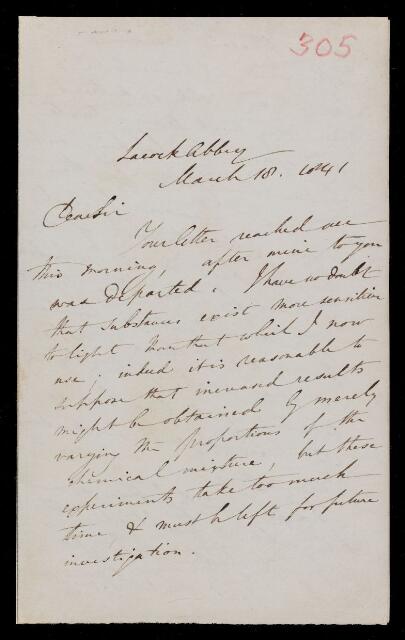 305
Lacock Abbey
March 18. 1841
Dear Sir
Your letter reached me
this morning, after mine to you
was departed. I have no doubt
that substances exist more sensitive
to light than that which I now
use; indeed it is reasonable to
suppose that increased results
might be obtained by merely
varying the proportions of the
chemical mixture, but these
experiments take too much
time & must be left for future
investigation.